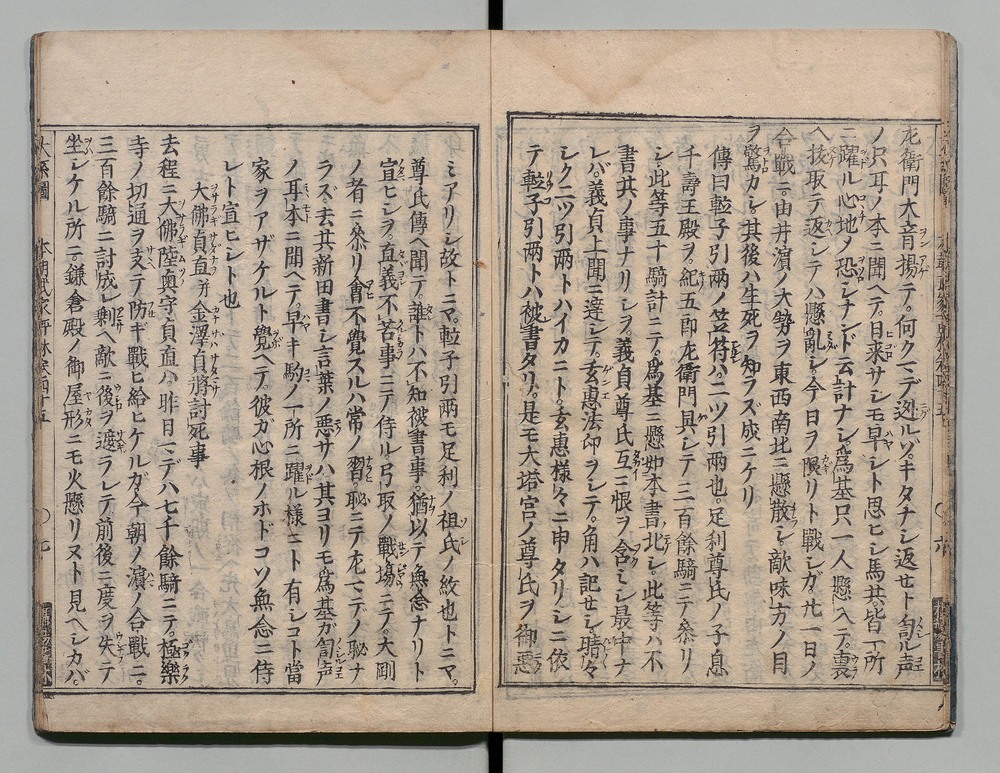 左衛門大音揚テ。何クマデ迯ルソ。キタナシ返セト訇ル声
ノ只耳ノ本ニ聞ヘテ。日来サシモ早シト思ヒシ馬共。皆一所
ニ躍ル心地ノ恐シナンド云計ナシ。為基只一人懸入テ。裏
ヘ抜取テ返シテハ懸乱シ。今日ヲ限リト戦シガ。廿一日ノ
合戦ニ。由井濱ノ大勢ヲ東西南北ニ懸散シ。敵味方ノ目
ヲ驚カシ。其後ハ生死ヲ知ラズ成ニケリ
傳曰輪子引両ノ笠符ハ二ツ引両也。足利尊氏ノ子息
千壽王殿ヲ。紀五郎左衛門具シテ。三百餘騎ニテ參リ
シ此等五十騎計ニテ。為基ニ懸如本書北シ。此等ハ不
書共ノ事ナリシヲ。義貞尊氏互ニ恨ヲ含シ最中ナ
レバ。義貞上聞ニ達シテ。玄惠法印ヲシテ。角ハ記セシ。時々
シク二ツ引両トハイカニト。玄惠様々ニ申タリシニ依
テ。輪子引両トハ被書タリ。是モ大塔宮ノ尊氏ヲ御悪
ミアリシ故トニマ。輪子引両モ足利ノ祖氏ノ紋也トニマ。
尊氏傳ヘ聞テ。誰トハ不知被書事。猶以テ無念ナリト
宣ヒシヲ。直義不苦事ニテ侍ル弓取ノ戰場ニテ。大剛
ノ者ニ參リ會不覺スルハ常ノ習。恥ニテ左マデノ恥ナ
ラズ。去共新田書シ言葉ノ悪サハ其ヨリモ。為基ガ訇声
ノ耳本ニ聞ヘテ。早キ駒ノ一所ニ躍ル様ニト有シコト。當
家ヲアザケルト覺ヘテ。彼ガ心根ノホドコソ無念ニ侍
レト宣ヒシト也
大佛貞直并金澤貞將討死事
去程ニ大佛陸奥守貞直ハ。昨日マデハ七千餘騎ニテ。極樂
寺ノ切通ヲ支テ防ギ戰ヒ給ヒケルガ。今朝ノ濱ノ合戰ニ。
三百餘騎ニ討成レ。剰ヘ敵ニ後ヲ遮ラレテ。前後ニ度ヲ失テ
坐シケル所ニ。鎌倉殿ノ御屋形ニモ火懸リヌト見ヘシカバ。